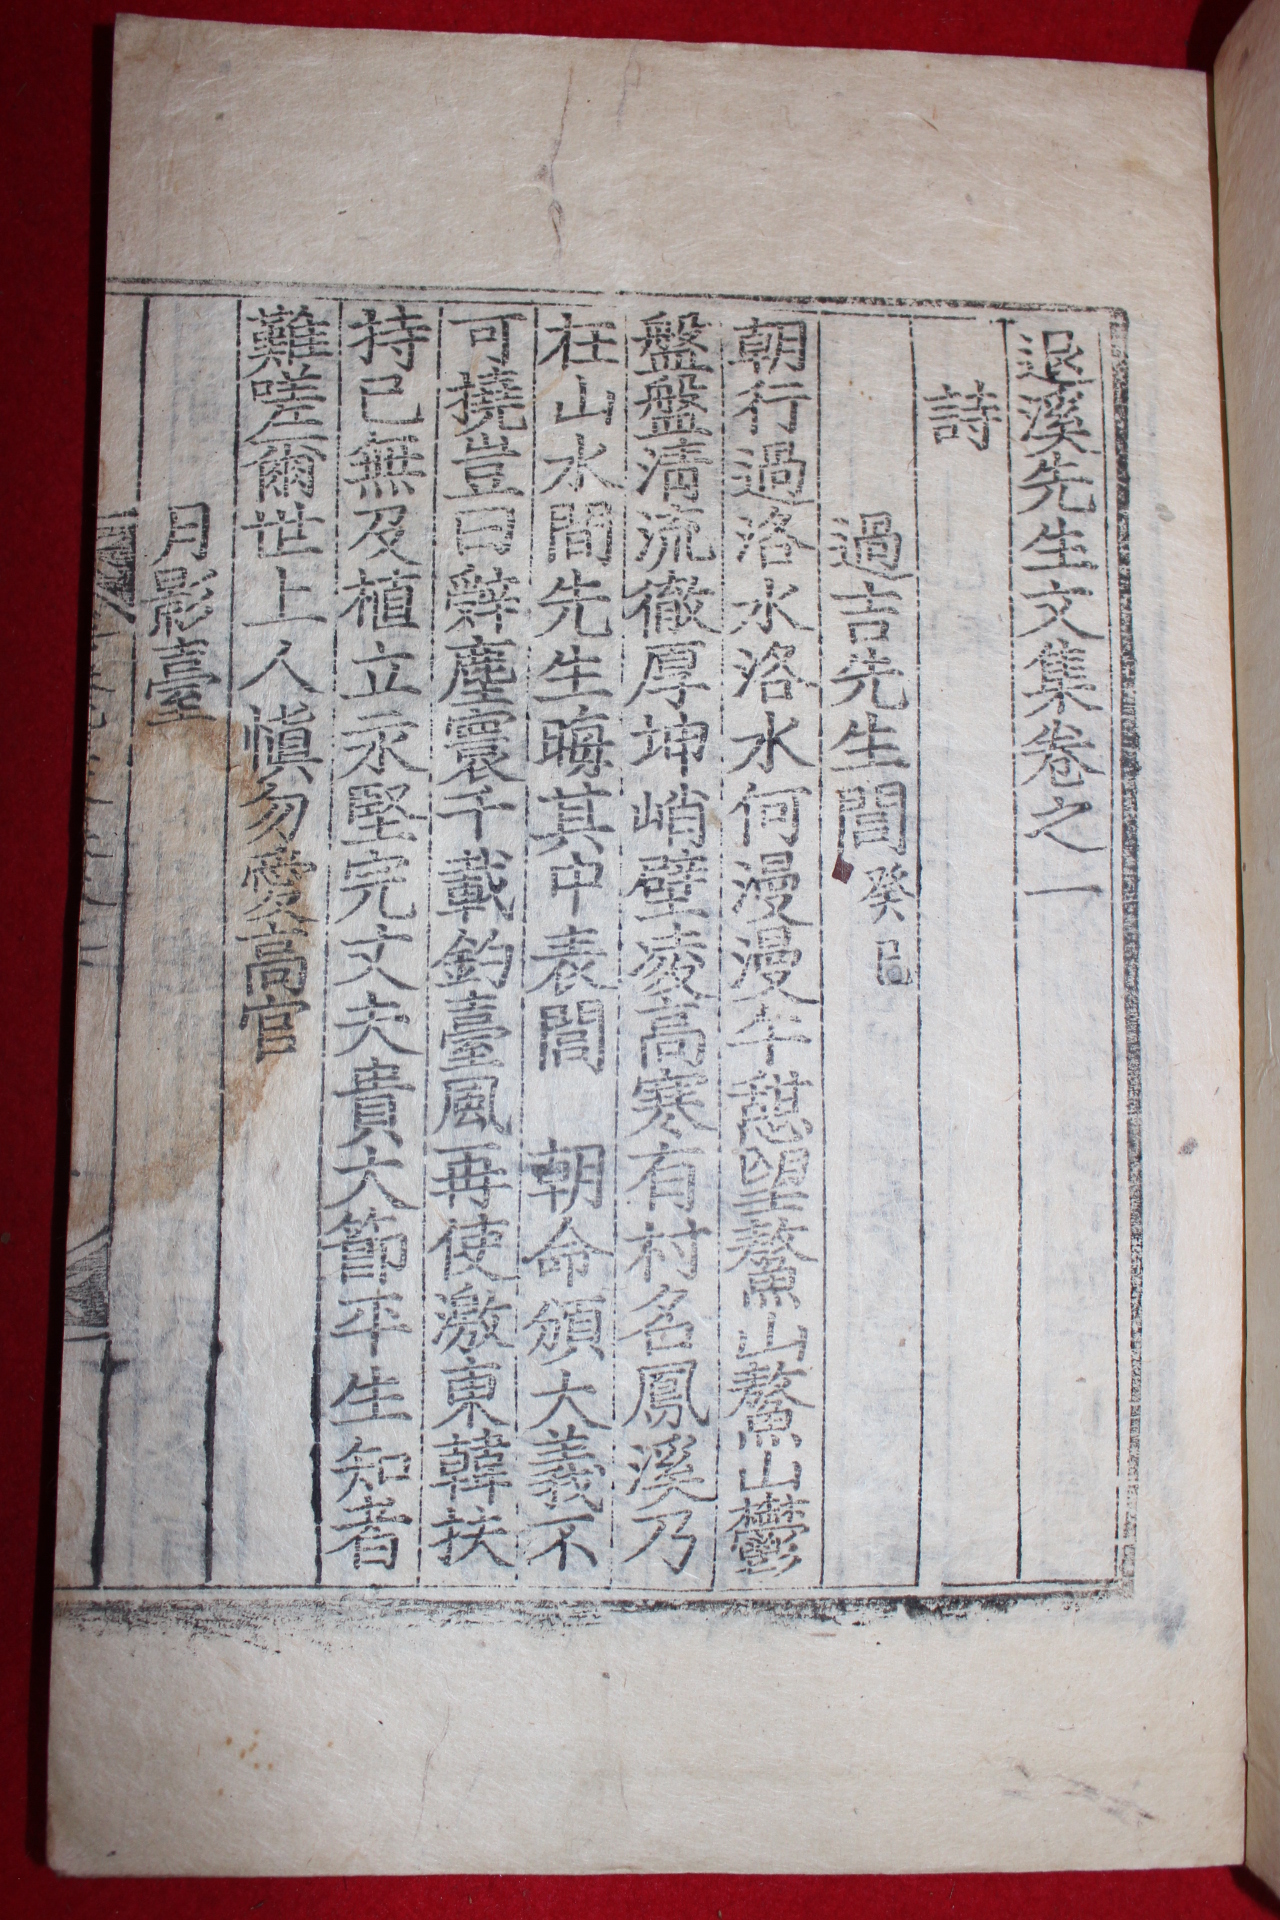 退溪先生文集卷之一
詩
過吉先生閭 癸巳
朝行過洛水洛水何漫漫午憩望鰲山鰲山鬱
盤盤清流徹厚坤峭壁凌高寒有村名鳳溪乃
在山水間先生晦其中表閭 朝命頒大義不
可撓豈曰辭塵寰千載釣臺風再使激東韓扶
持已無及植立永堅完丈夫貴大節平生知者
難嗟爾世上人愼勿愛高官
月影臺